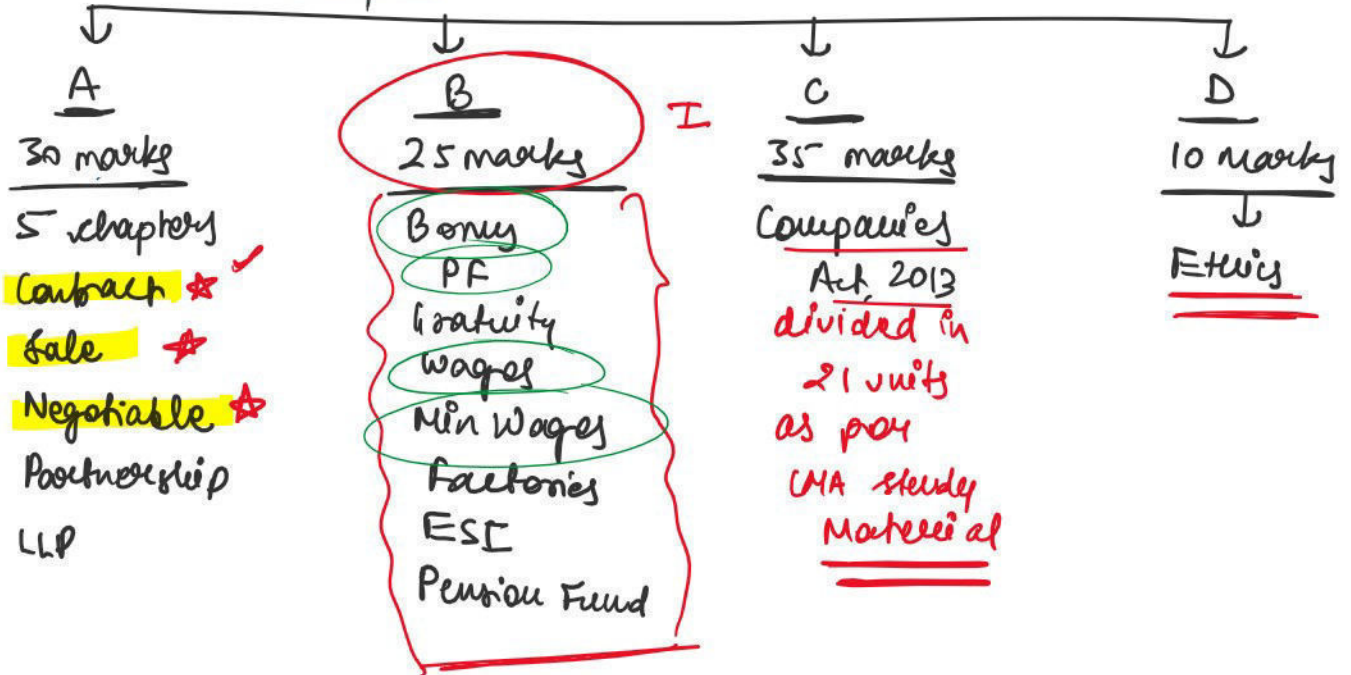 A
30 marks
5 chapters
Contract
Sale
Negotiable
Partnership
LLP
B
25 marks
I
Bonus
PF
Gratuity
Wages
Min Wages
Factories
ESI
Pension Fund
C
35 marks
Companies
Act, 2013
divided in
21 units
as per
CMA study
Material
D
10 Marks
Ethics